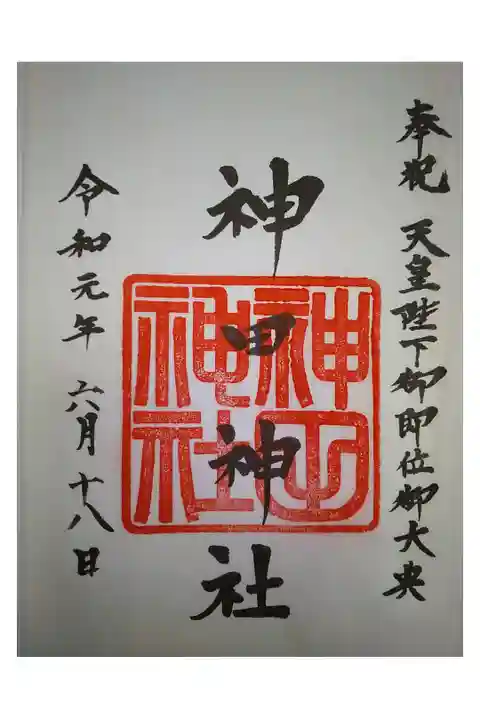 奉祝 天皇陛下御即位御大典
神田神社
神田
神社
令和元年 六月十八日